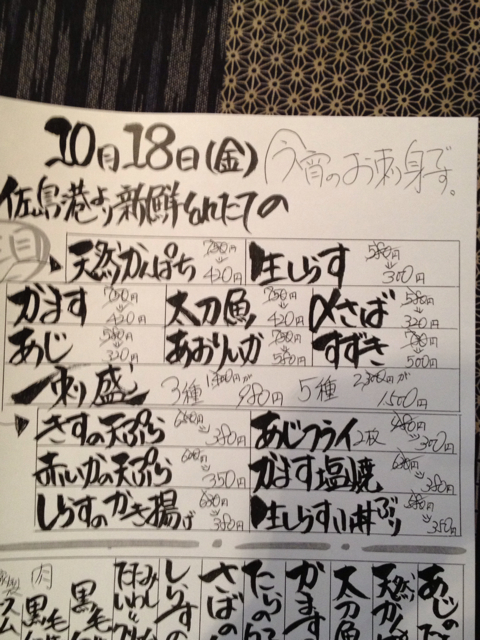 10月18日(金) 今宵のお刺身です。
佐島港より新鮮とれたての
天然かんぱち 750円 420円 生しらす 580円 300円
かます 750円 420円 太刀魚 750円 420円 〆さば 580円 320円
あじ 580円 320円 あおりいか 750円 580円 すずき 750円 500円
刺盛 3種 980円 5種 2300円が 1500円
きすの天ぷら 380円 あじフライ 2枚 300円
赤いかの天ぷら 350円 かます塩焼 380円
しらすのかき揚げ 380円 生しらす小丼ぶり 350円
あじの
天然かん
太刀魚
かますの
たらの
さばの
しらすの
黒毛
肉 黒毛